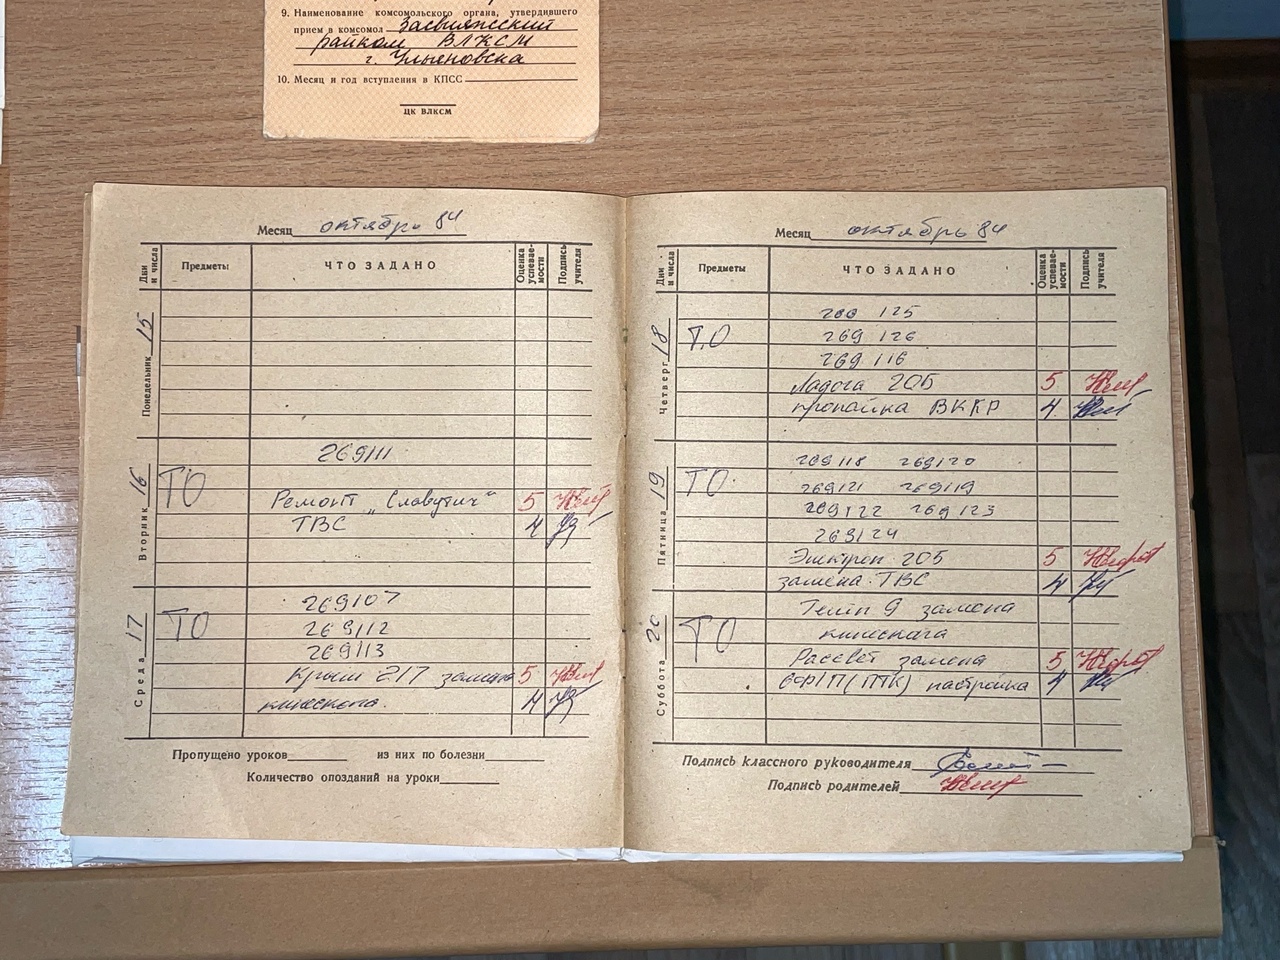 9. Наименование комсомольского органа, утвердившего
прием в комсомол Засвияжский
райком ВЛКСМ
г. Ульяновска
10. Месяц и год вступления в КПСС
ЦК ВЛКСМ
Месяц октябрь 84
Дни и числа Предметы ЧТО ЗАДАНО Оценка успеваемости Подпись учителя
Понедельник 15
Вторник 16
ТО
269111
Ремонт „Славутич“ 5
ТВС 4
Среда 17
ТО
269107
269112
269113
Крым 217 замена 5
кинескопа. 4
Пропущено уроков из них по болезни
Количество опозданий на уроки
Месяц октябрь 84
Дни и числа Предметы ЧТО ЗАДАНО Оценка успеваемости Подпись учителя
Четверг 18
Т.О
269 125
269 126
269 116
Ладога 205 5
пропайка ВККР 4
Пятница 19
ТО
269118 269120
269121 269119
269122 269123
269124
Электрон 205 5
замена ТВС 4
Суббота 20
ТО
Темп 9 замена
кинескопа
Рассвет замена 5
6Ф1П (ПТК) настройка 4
Подпись классного руководителя
Подпись родителей